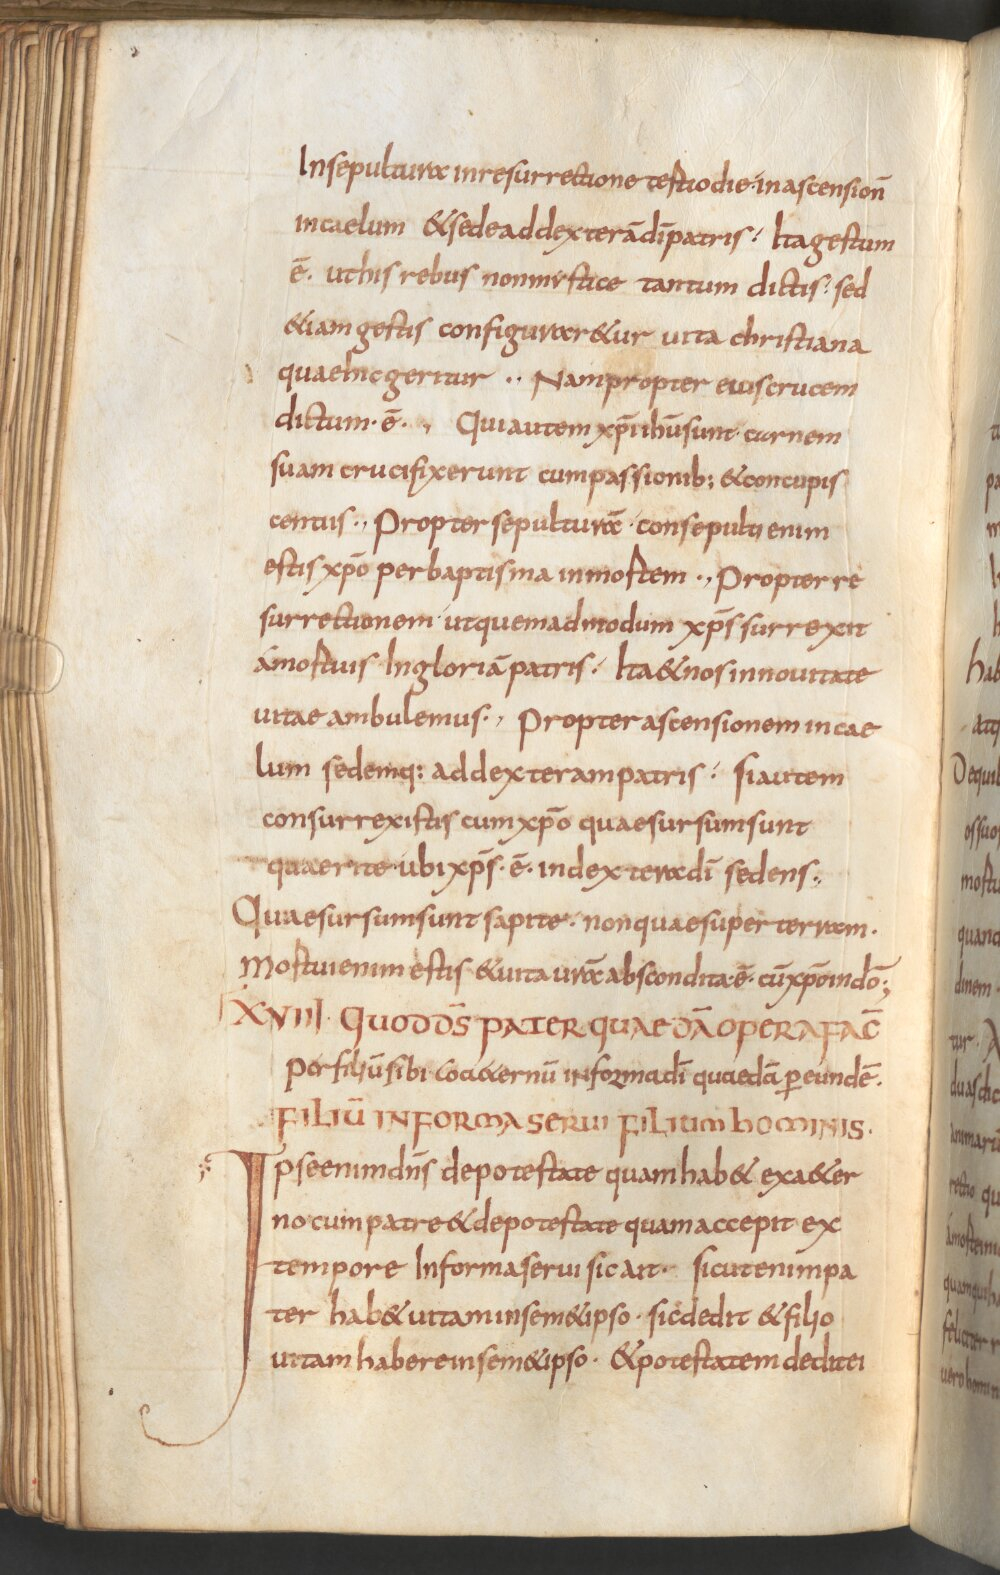 In sepultura in resurrectione tertio die· in ascensionē
in caelum & sede ad dexterā dī patris· Ita gestum
ē· ut his rebus non mystice tantum dictis· sed
&iam gestis configurar&ur uita christiana
quae hic geritur ·, Nam propter eius crucem
dictum·ē· , Qui autem xp̄i ihū sunt· carnem
suam crucifixerunt cum passionib; & concupis
centiis ·, Propter sepulturā· consepulti enim
estis xp̄o per baptisma in mortem ·, Propter re
surrectionem· ut quemadmodum xp̄s surrexit
á mortuis· In gloriā patris· Ita & nos in nouitate
uitae ambulemus· , Propter ascensionem in cae
lum sedemq: ad dexteram patris· si autem
consurrexistis cum xp̄o quae sursum sunt
quaerite· ubi xp̄s·ē· in dextera dī sedens·,
Quae sursum sunt sapite· non quae super terram·
Mortui enim estis & uita urā abscondita·ē· cū xp̄o in dō·;
XVIII· QUOD D̄S PATER QUAEDĀ OPERA FAC̄
Per filiū sibi coa&ernū in forma dī quaedā p̲ eundē·
FILIŪ IN FORMA SERUI FILIUM HOMINIS·
Ipse enim dn̄s de potestate quam hab& ex a&er
no cum patre & de potestate quam accepit ex
tempore In forma serui sic ait· sicut enim pa
ter hab& uitam in sem&ipso· sic dedit & filio
uitam habere in sem&ipso· & potestatem dedit ei